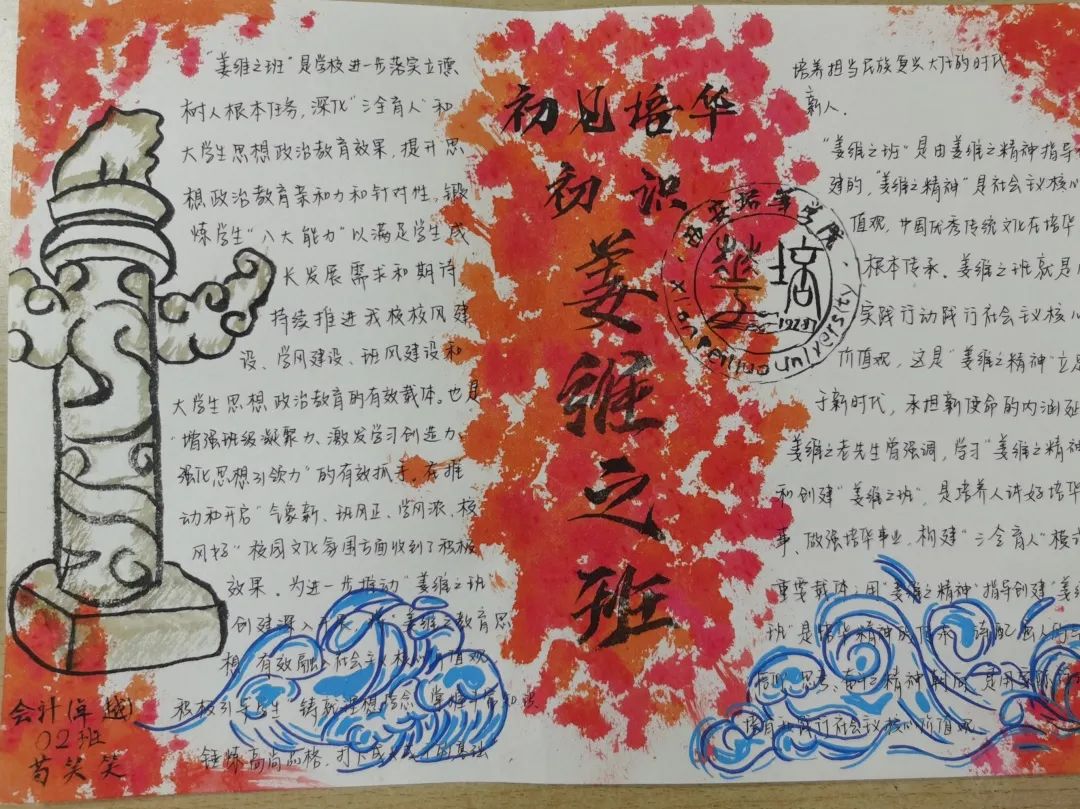 "姜维之班"是学校进一步落实立德
树人根本任务,深化"三全育人"和
大学生思想政治教育效果,提升思
想政治教育亲和力和针对性,锻
炼学生"八大能力"以满足学生成
长发展需求和期待
持续推进我校校风建
设、学风建设、班风建设和
大学生思想政治教育的有效载体。也是
"增强班级凝聚力、激发学习创造力
强化思想引领力"的有效抓手。在推
动和开启"气象新、班风正、学风浓、校
风好"校园文化氛围方面收到了积极
效果。为进一步推动"姜维之班
创建深入开展 姜维之教育思
想 有效融入社会主义核心价值观
积极引导学生"铸就理想信念
锤炼高尚品格,打下成
会计(卓越)
02班
苟笑笑
初见培华
初识
姜维之班
西安培华学院
培华
1928
Xi'an peihua university
培养担当民族复兴大任的时代
新人.
"姜维之班"是由姜维之精神指导
建的,"姜维之精神"是社会主义核心
值观,中国优秀传统文化在培华
根本传承。姜维之班就是
实践行动践行社会主义核心
价值观,这是"姜维之精神"立足
于新时代,承担新使命的内涵延
姜维之老先生曾强调,学习"姜维之精神
和创建"姜维之班",是培养人讲好培华
事、做强培华事业、构建"三全育人"模式
重要载体;用"姜维之精神"指导创建"姜维
班"是培华精神的传承
精神
培育和践行社会主义核心价值观